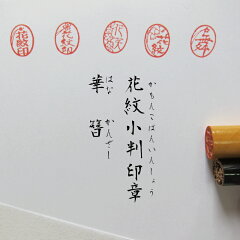 花紋印
花紋印
かもんこばんいんしょう
花紋小判印章
はな かんざし
華簪